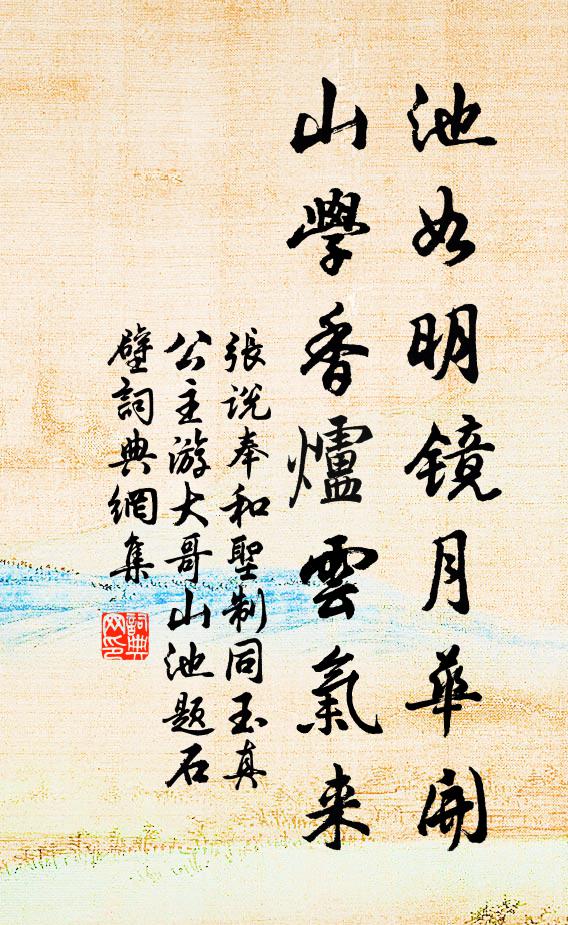 池如明镜月华開
山學香爐雲氣来
張说奉和聖制同玉真
公主游大哥山池题石
壁詞典網集
詞典
网印